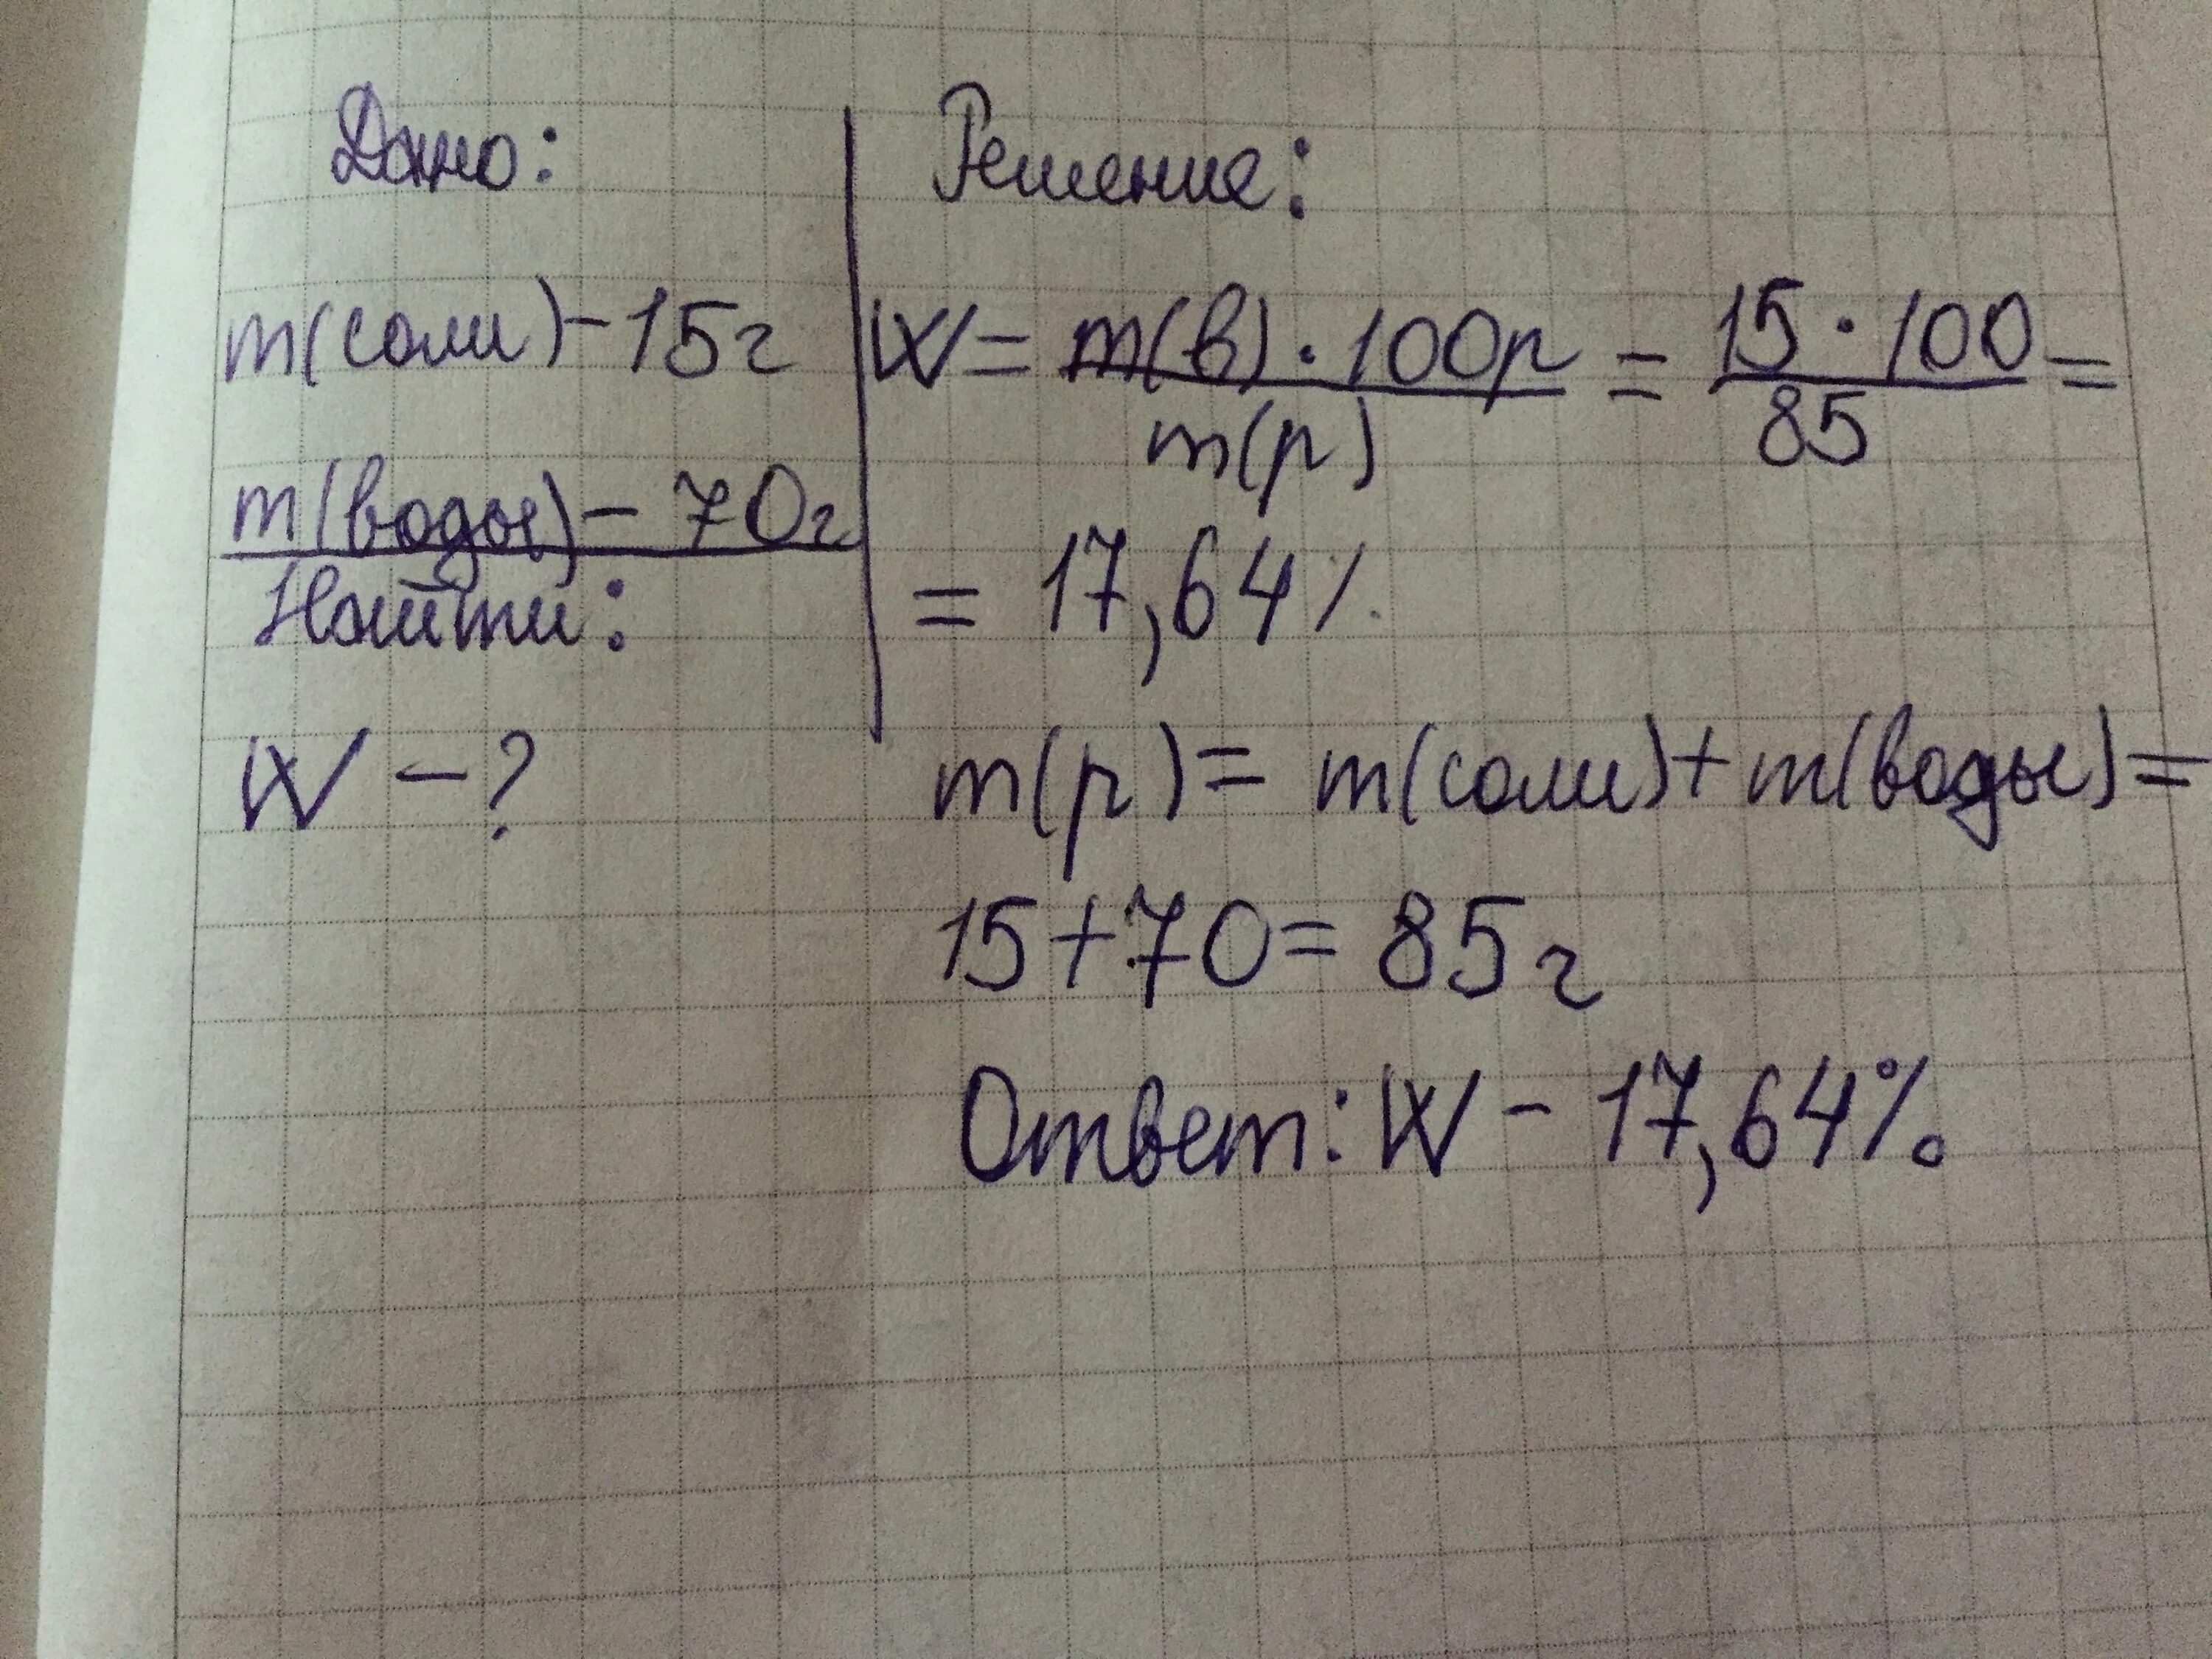 Дано:
m(соли) - 15г
m(воды) - 70г
Найти:
W - ?
Решение:
W = m(в) · 100р / m(р) = 15 · 100 / 85 =
= 17,64 %
m(р) = m(соли) + m(воды) =
15 + 70 = 85 г
Ответ: W - 17,64%